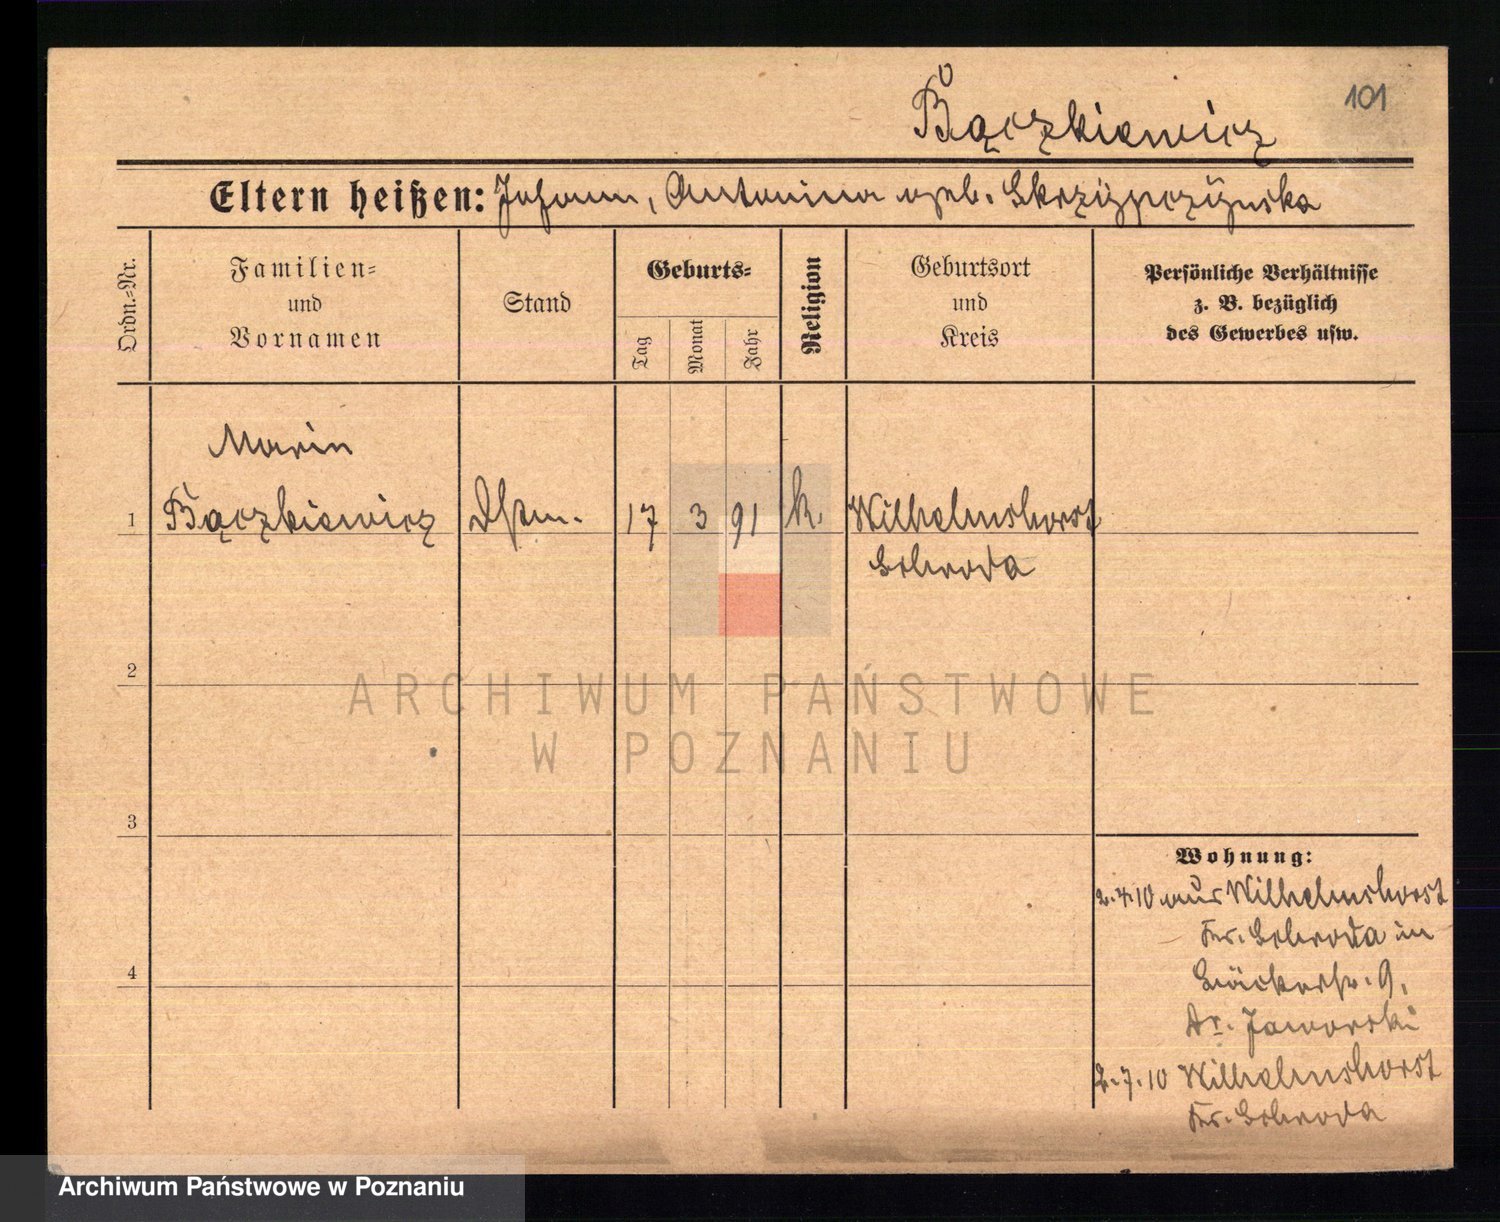 Bączkiewicz
101
Eltern heißen: Johann, Antonina geb. Skrzypczyńska
Ordn.-Nr.
Familien-
und
Vornamen
Stand
Geburts-
Tag
Monat
Jahr
Religion
Geburtsort
und
Kreis
Persönliche Verhältnisse
z. B. bezüglich
des Gewerbes usw.
Marie
1 Bączkiewicz 17 3 91 k. Wilhelmshorst
Schroda
2
ARCHIWUM PAŃSTWOWE
W POZNANIU
3
Wohnung:
2.4.10 aus Wilhelmshorst
Kr. Schroda in
Bäckerstr. 9.
Dr. Jaworski
4
2.7.10 Wilhelmshorst
Kr. Schroda
Archiwum Państwowe w Poznaniu